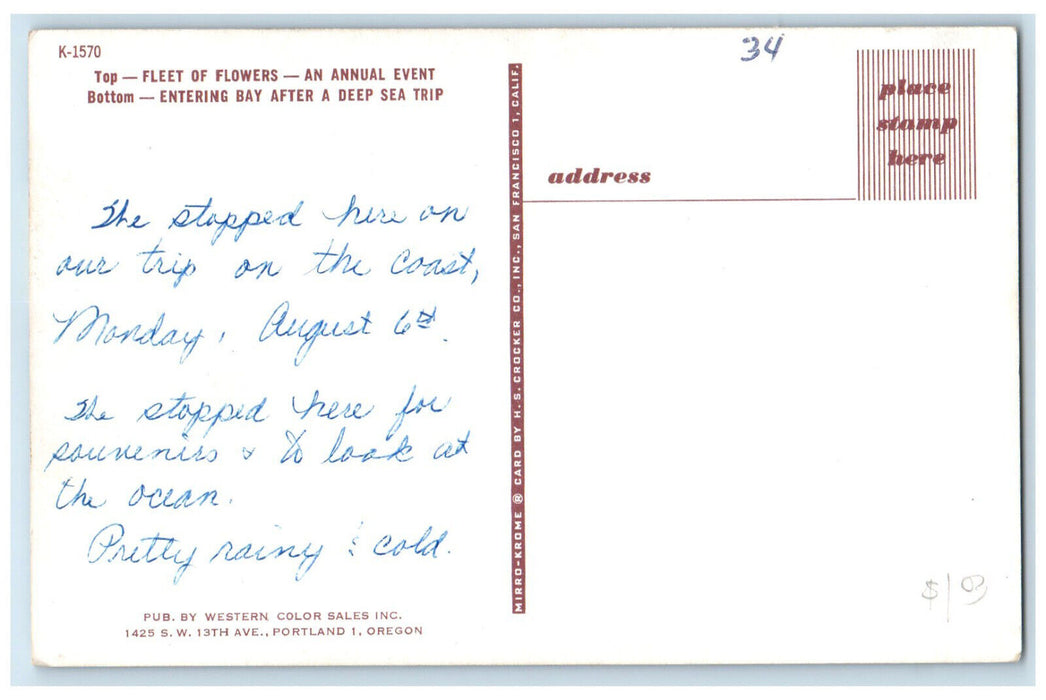 K-1570
Top — FLEET OF FLOWERS — AN ANNUAL EVENT
Bottom — ENTERING BAY AFTER A DEEP SEA TRIP
The stopped here on
our trip on the coast,
Monday, August 6th.
The stopped here for
souvenirs & to look at
the ocean.
Pretty rainy & cold.
PUB. BY WESTERN COLOR SALES INC.
1425 S. W. 13TH AVE., PORTLAND 1, OREGON
MIRRO-KROME ® CARD BY H. S. CROCKER CO., INC., SAN FRANCISCO 1, CALIF.
34
place
stamp
here
address